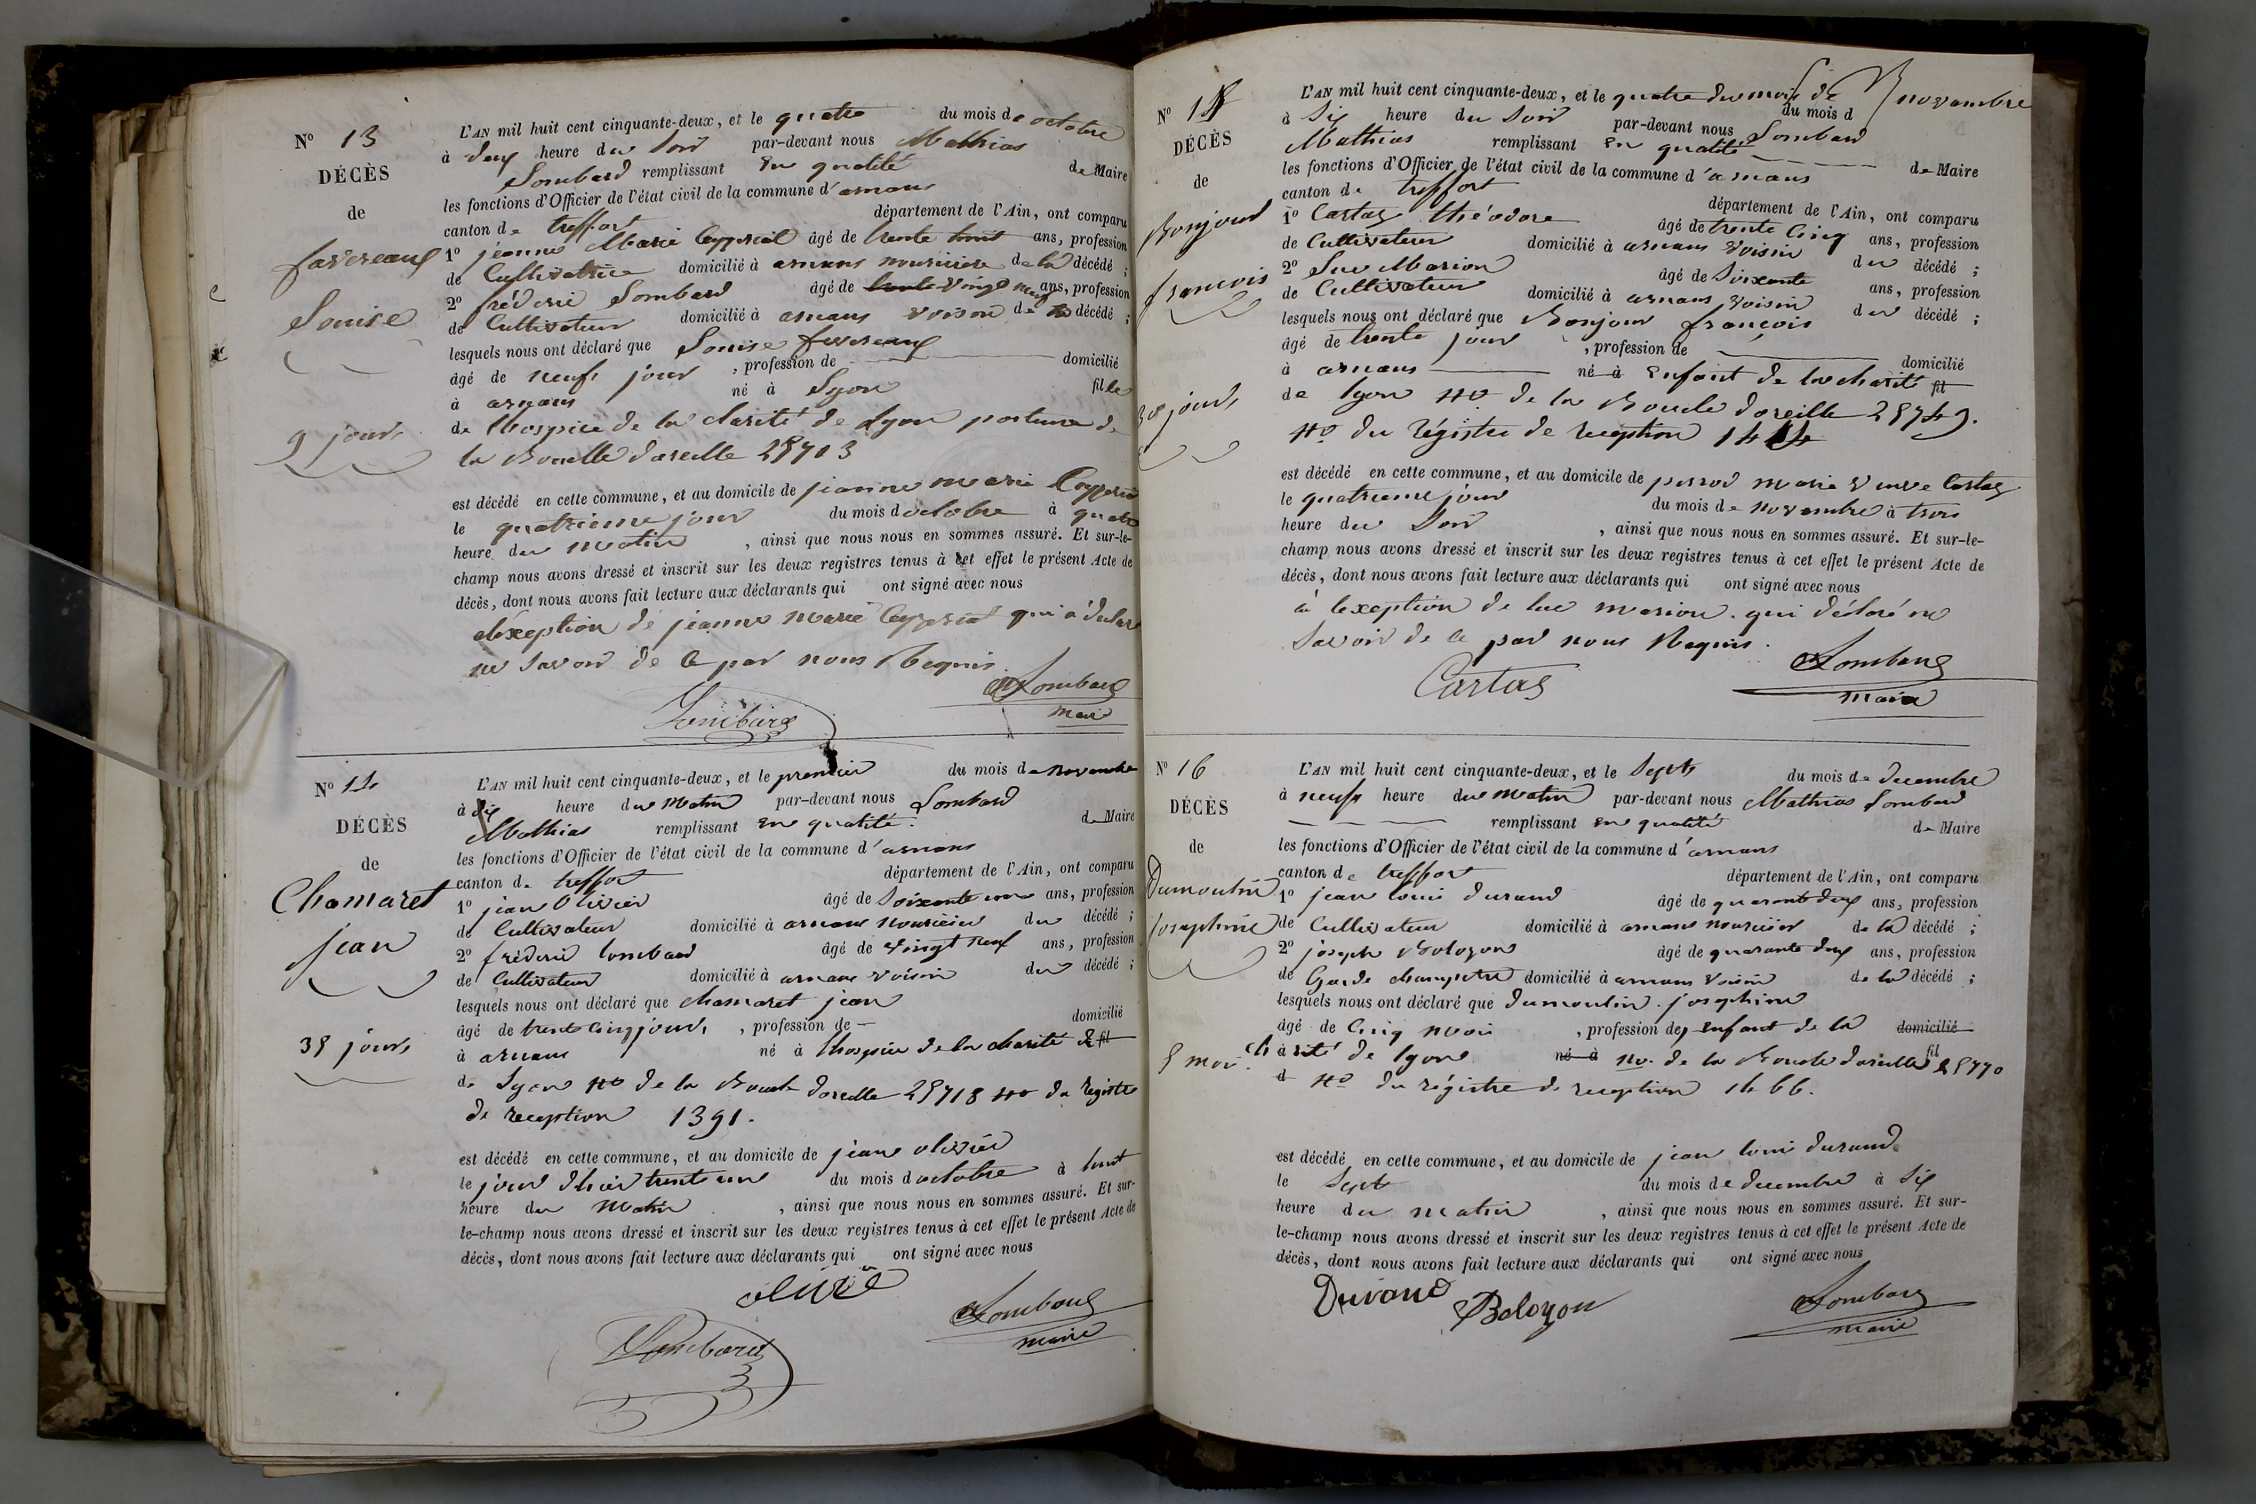 N° 13
DÉCÈS
de
favreaux
Louise
9 jours
L'AN mil huit cent cinquante-deux, et le quatre du mois de octobre
à deux heure du soir par-devant nous Mathias
Lombard remplissant en qualité de Maire
les fonctions d'Officier de l'état civil de la commune d'arnans
canton de treffort département de l'Ain, ont comparu
1° jeanne Marie âgé de trente huit ans, profession
de Cultivatrice domicilié à arnans nourricière de la décédé ;
2° fréderic Lombard âgé de vingt neuf ans, profession
de Cultivateur domicilié à arnans voisin de la décédé ;
lesquels nous ont déclaré que Louise favreaux
âgé de neuf jour , profession de domicilié
à arnans né à Lyon fille
de lhospice de la charité de Lyon porteure de
la Boucle doreille 25703
est décédé en cette commune, et au domicile de jeanne marie
le quatrieme jour du mois d octobre à quatre
heure du matin , ainsi que nous nous en sommes assuré. Et sur-le-
champ nous avons dressé et inscrit sur les deux registres tenus à cet effet le présent Acte de
décès, dont nous avons fait lecture aux déclarants qui ont signé avec nous
alexeption de jeanne Marie qui a déclaré
ne savoir de ce par nous Requis.
Lombard
Lombard
maire
N° 14
DÉCÈS
de
Chamaret
jean
35 jours
L'AN mil huit cent cinquante-deux, et le premier du mois de novembre
à dix heure du matin par-devant nous Lombard
Mathias remplissant en qualité de Maire
les fonctions d'Officier de l'état civil de la commune d'arnans
canton de treffort département de l'Ain, ont comparu
1° jean Olivier âgé de soixante un ans, profession
de Cultivateur domicilié à arnans nourricier du décédé ;
2° fréderic lombard âgé de vingt neuf ans, profession
de Cultivateur domicilié à arnans voisin du décédé ;
lesquels nous ont déclaré que chamaret jean
âgé de trente cinq jours, , profession de domicilié
à arnans né à lhospice de la charité fil
de Lyon No de la Boucle doreille 25718 No du registre
de reception 1391.
est décédé en cette commune, et au domicile de jean olivier
le jour dhier trente un du mois d octobre à huit
heure du matin , ainsi que nous nous en sommes assuré. Et sur-
le-champ nous avons dressé et inscrit sur les deux registres tenus à cet effet le présent Acte de
décès, dont nous avons fait lecture aux déclarants qui ont signé avec nous
Lombard
Lombard
maire
N° 15
DÉCÈS
de
Bonjour
françois
30 jours
L'AN mil huit cent cinquante-deux, et le quatre du mois de novembre
du mois d
à six heure du soir par-devant nous Lombard
Mathias remplissant en qualité de Maire
les fonctions d'Officier de l'état civil de la commune d'arnans
canton de treffort département de l'Ain, ont comparu
1° Cartas théodore âgé de trente cinq ans, profession
de Cultivateur domicilié à arnans voisin du décédé ;
2° Luc Marion âgé de soixante ans, profession
de Cultivateur domicilié à arnans voisin du décédé ;
lesquels nous ont déclaré que Bonjour françois
âgé de trente jour , profession de domicilié
à arnans né à enfant de la charité fil
de lyon No de la Boucle doreille 25749.
No du régistre de reception 1444
est décédé en cette commune, et au domicile de perrod marie veuve Cartas
le quatrieme jour du mois de novembre à trois
heure du soir , ainsi que nous nous en sommes assuré. Et sur-le-
champ nous avons dressé et inscrit sur les deux registres tenus à cet effet le présent Acte de
décès, dont nous avons fait lecture aux déclarants qui ont signé avec nous
à lexeption de luc marion. qui déclaré ne
savoir de ce par nous Requis.
Cartas
Lombard
maire
N° 16
DÉCÈS
de
Dumoulin
Josephine
5 moi
L'AN mil huit cent cinquante-deux, et le sept du mois de decembre
à neuf heure du matin par-devant nous Mathias Lombard
remplissant en qualité de Maire
les fonctions d'Officier de l'état civil de la commune d'arnans
canton de treffort département de l'Ain, ont comparu
1° jean louis durand âgé de quarante deux ans, profession
de Cultivateur domicilié à arnans nourricier de la décédé ;
2° joseph Bolozon âgé de quarante deux ans, profession
de Garde champetre domicilié à arnans voisin de la décédé ;
lesquels nous ont déclaré que dumoulin josephine
âgé de cinq moi , profession de enfant de la domicilié
charité de lyon né à no. de la Boucle doreille fil 25770
d No du régistre de reception 1466.
est décédé en cette commune, et au domicile de jean louis durand
le sept du mois de decembre à six
heure du matin , ainsi que nous nous en sommes assuré. Et sur-
le-champ nous avons dressé et inscrit sur les deux registres tenus à cet effet le présent Acte de
décès, dont nous avons fait lecture aux déclarants qui ont signé avec nous
Durand
Bolozon
Lombard
maire